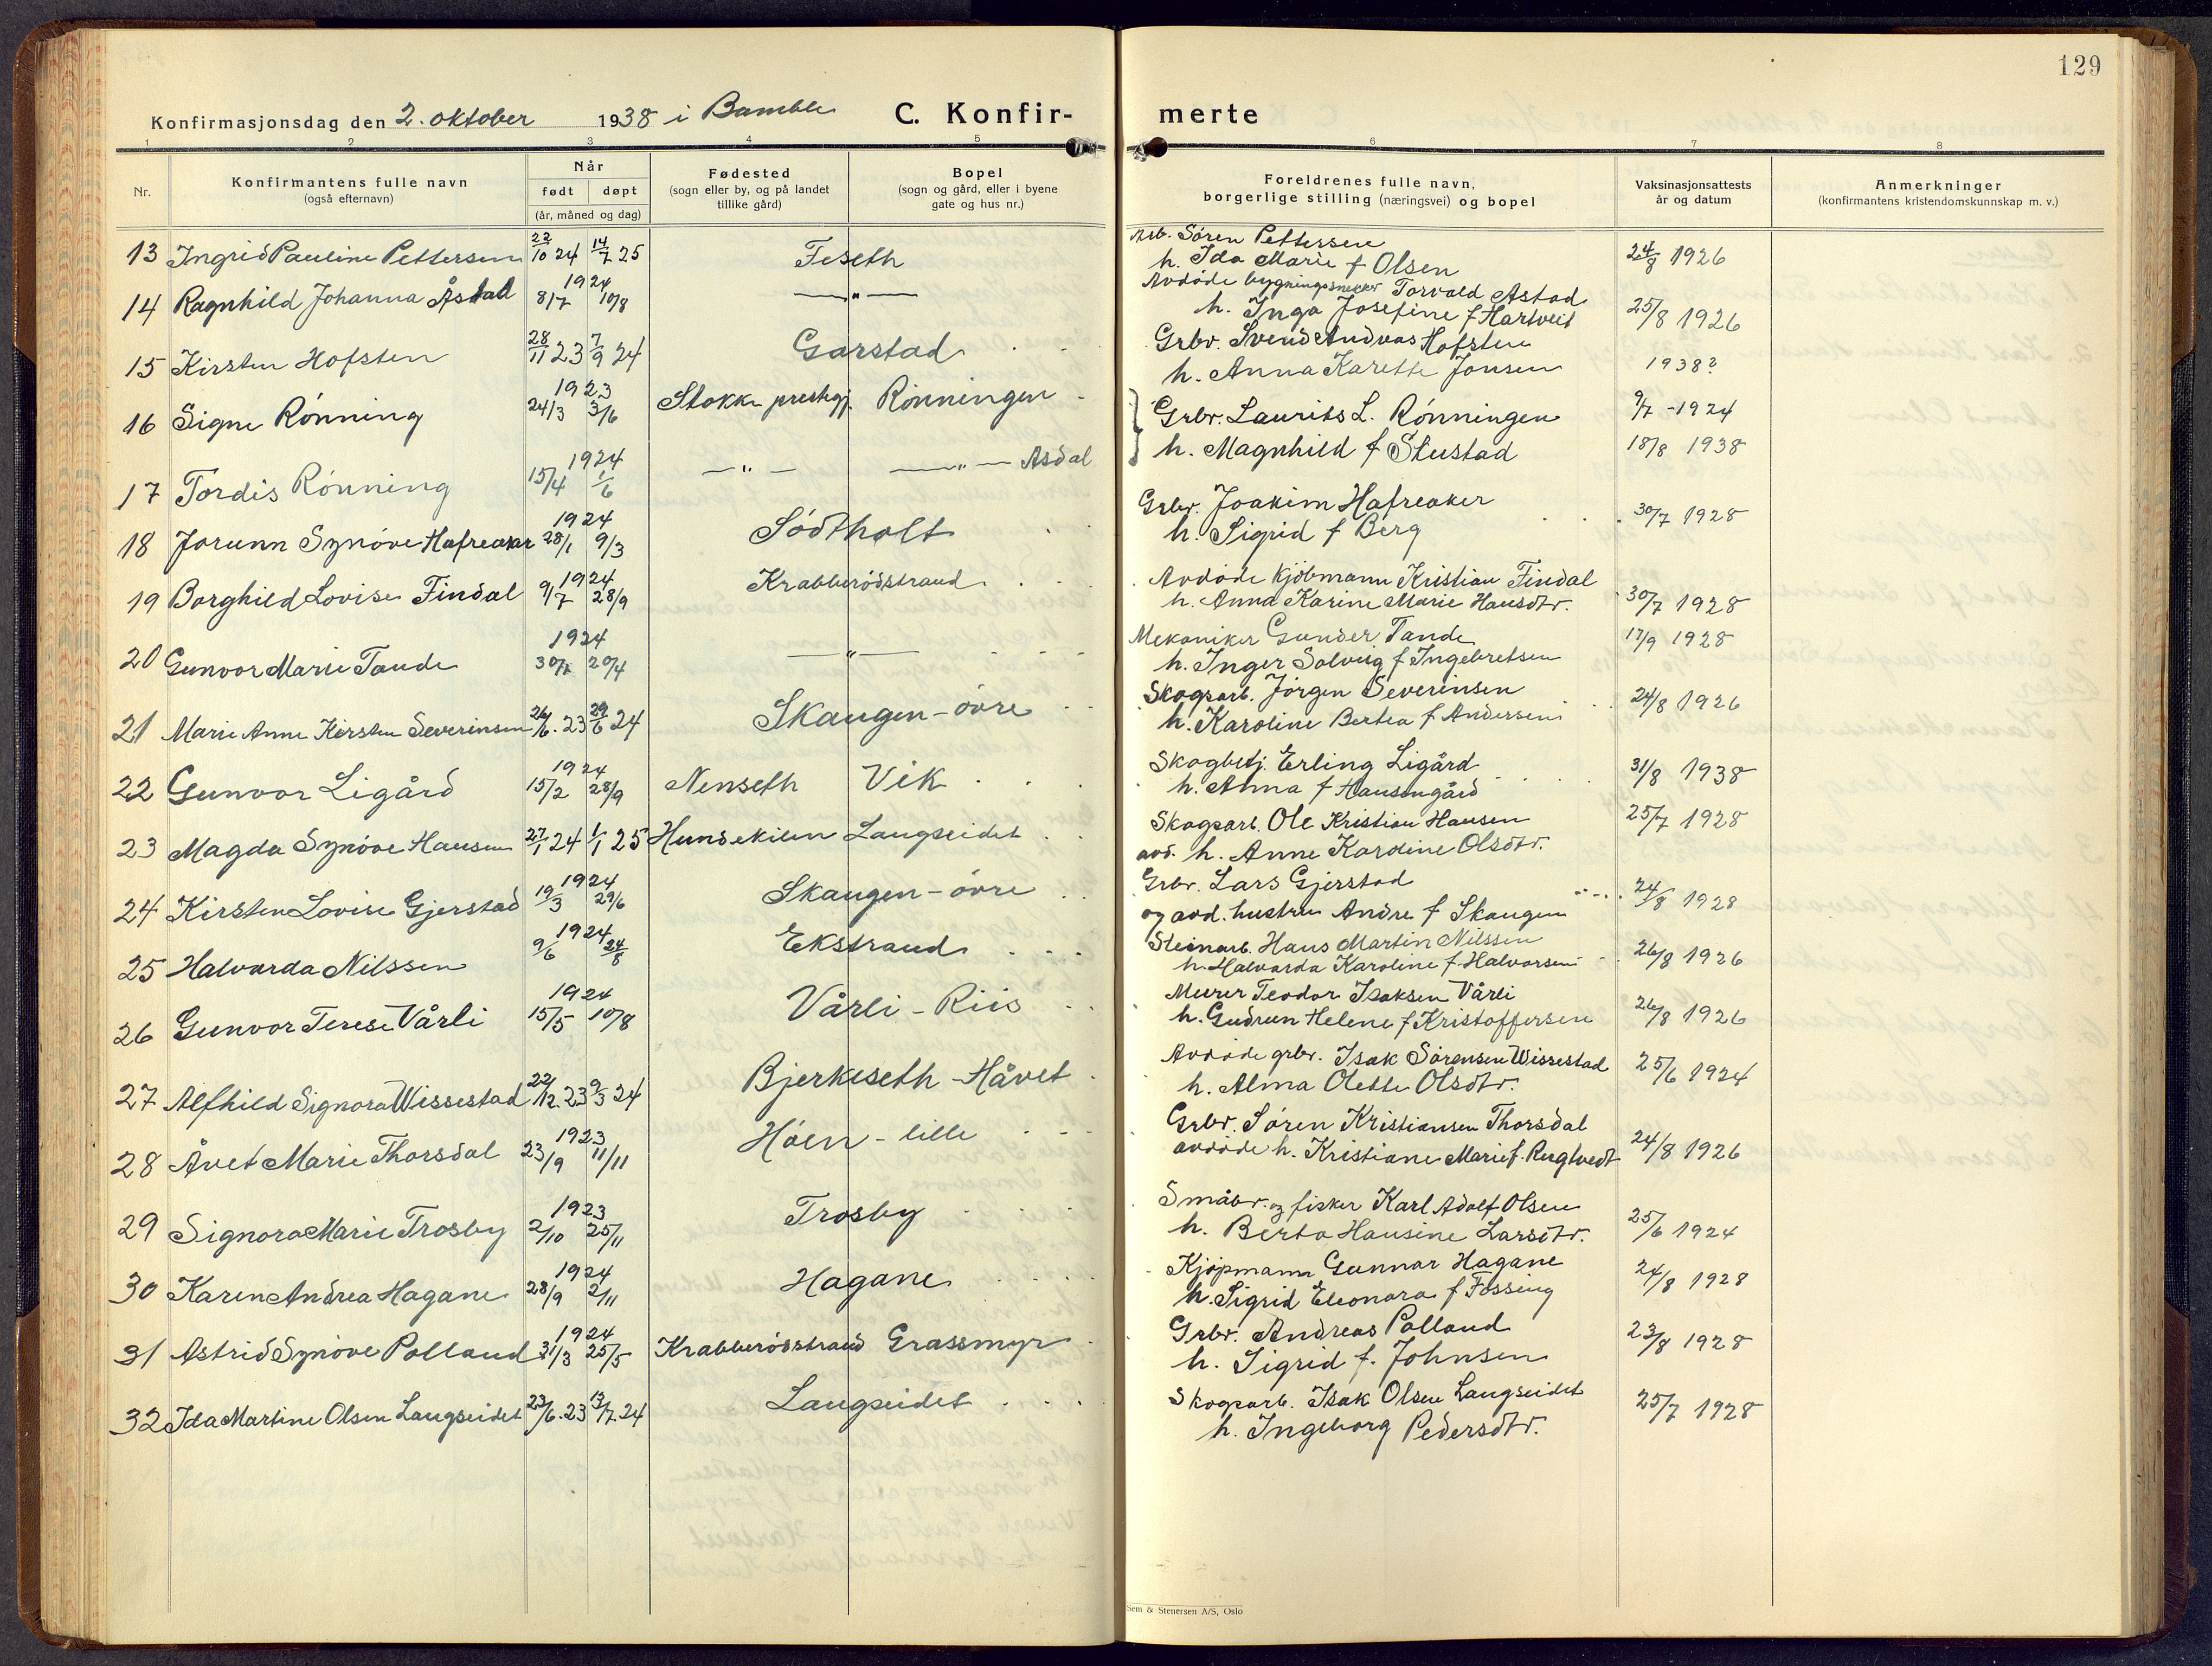 129
Konfirmasjonsdag den 2. oktober 1938 i Bamble C. Konfir-merte
1 2 3 4 5 6 7 8
Nr. Konfirmantens fulle navn (også efternavn) Når født døpt (år, måned og dag) Fødested (sogn eller by, og på landet tillike gård) Bopel (sogn og gård, eller i byene gate og hus nr.) Foreldrenes fulle navn, borgerlige stilling (næringsvei) og bopel Vaksinasjonsattests år og datum Anmerkninger (konfirmantens kristendomskunnskap m. v.)
13 Ingrid Pauline Pettersen 22/10 24 14/7 25 Feseth Arb. Søren Pettersen
h. Ida Marie f Olsen 24/8 1926
14 Ragnhild Johanna Åstad 1924 8/7 10/8 —„— Avdøde bygningssnekker Torvald Åstad
h. Inga Josefine f Hartveit 25/8 1926
15 Kirsten Hofsten 28/11 23 7/9 24 Garstad Grbr. Svend Andreas Hofsten
h. Anna Karette Jonsen 1938?
16 Signe Rønning 1923 24/3 3/6 Stokke prestegj. Rønningen Grbr. Laurits L. Rønningen 9/7 -1924
17 Tordis Rønning 1924 15/4 1/6 —„— —„— Åsdal h. Magnhild f Stustad 18/8 1938
18 Jorunn Synøve Hafreaker 1924 28/1 9/3 Sødtholt Grbr. Joakim Hafreaker
h. Sigrid f Berg 30/7 1928
19 Borghild Lovise Findal 1924 9/7 28/9 Krabberødstrand Avdøde Kjøbmann Kristian Findal
h. Anna Karine Marie Hansdtr. 30/7 1928
20 Gunvor Marie Tande 1924 30/1 20/4 —„— Mekaniker Gunder Tande
h. Inger Solveig f Ingebretsen 17/9 1928
21 Marie Anne Kirsten Severinsen 26/6. 23 29/6 24 Skaugen-øvre Skogsarb. Jørgen Severinsen
h. Karoline Bertea f Andersen 24/8 1926
22 Gunvor Ligård 1924 15/2 28/9 Nenseth Vik Skogbetj. Erling Ligård
h. Anna f Hansengård 31/8 1938
23 Magda Synøve Hansen 27/1 24 1/1 25 Hundekilen Langseidet Skogsarb. Ole Kristian Hansen
avd. h. Anne Karoline Olsdtr. 25/7 1928
24 Kirsten Lovise Gjerstad 1924 19/3 29/6 Skaugen-øvre Grbr. Lars Gjerstad
og avd. hustru Andre f Skaugen 24/8 1928
25 Halvarda Nilssen 1924 9/6 24/8 Ekstrand Steinarb. Hans Martin Nilssen
h. Halvarda Karoline f. Halvorsen 26/8 1926
26 Gunvor Terese Vårli 1924 15/5 10/8 Vårli-Riis Murer Teodor Isaksen Vårli
h. Gudrun Helene f Kristoffersen 26/8 1926
27 Alfhild Signora Wissestad 22/12. 23 9/3 24 Bjerkeseth-Håvet Avdøde grbr. Isak Sørensen Wissestad
h. Alma Olette Olsdtr. 25/6 1924
28 Åvet Marie Thorsdal 1923 23/9 11/11 Høen-lille Grbr. Søren Kristiansen Thorsdal
avdøde h. Kristiane Marie f. Rugtvedt 24/8 1926
29 Signora Marie Trosby 1923 2/10 25/11 Trosby Småbr. og fisker Karl Adolf Olsen
h. Berta Hansine Larsdtr. 25/6 1924
30 Karen Andrea Hagane 1924 28/9 2/11 Hagane Kjøpmann Gunnar Hagane
h. Sigrid Eleonora f Fossing 24/8 1928
31 Astrid Synøve Polland 1924 31/3 25/5 Krabberødstrand Grassmyr Grbr. Andreas Polland
h. Sigrid f. Johnsen 23/8 1928
32 Ida Martine Olsen Langseidet 23/6. 23 13/7. 24 Langseidet Skogsarb. Isak Olsen Langseidet
h. Ingeborg Pedersdtr. 25/7 1928
Sem & Stenersen A/S, Oslo